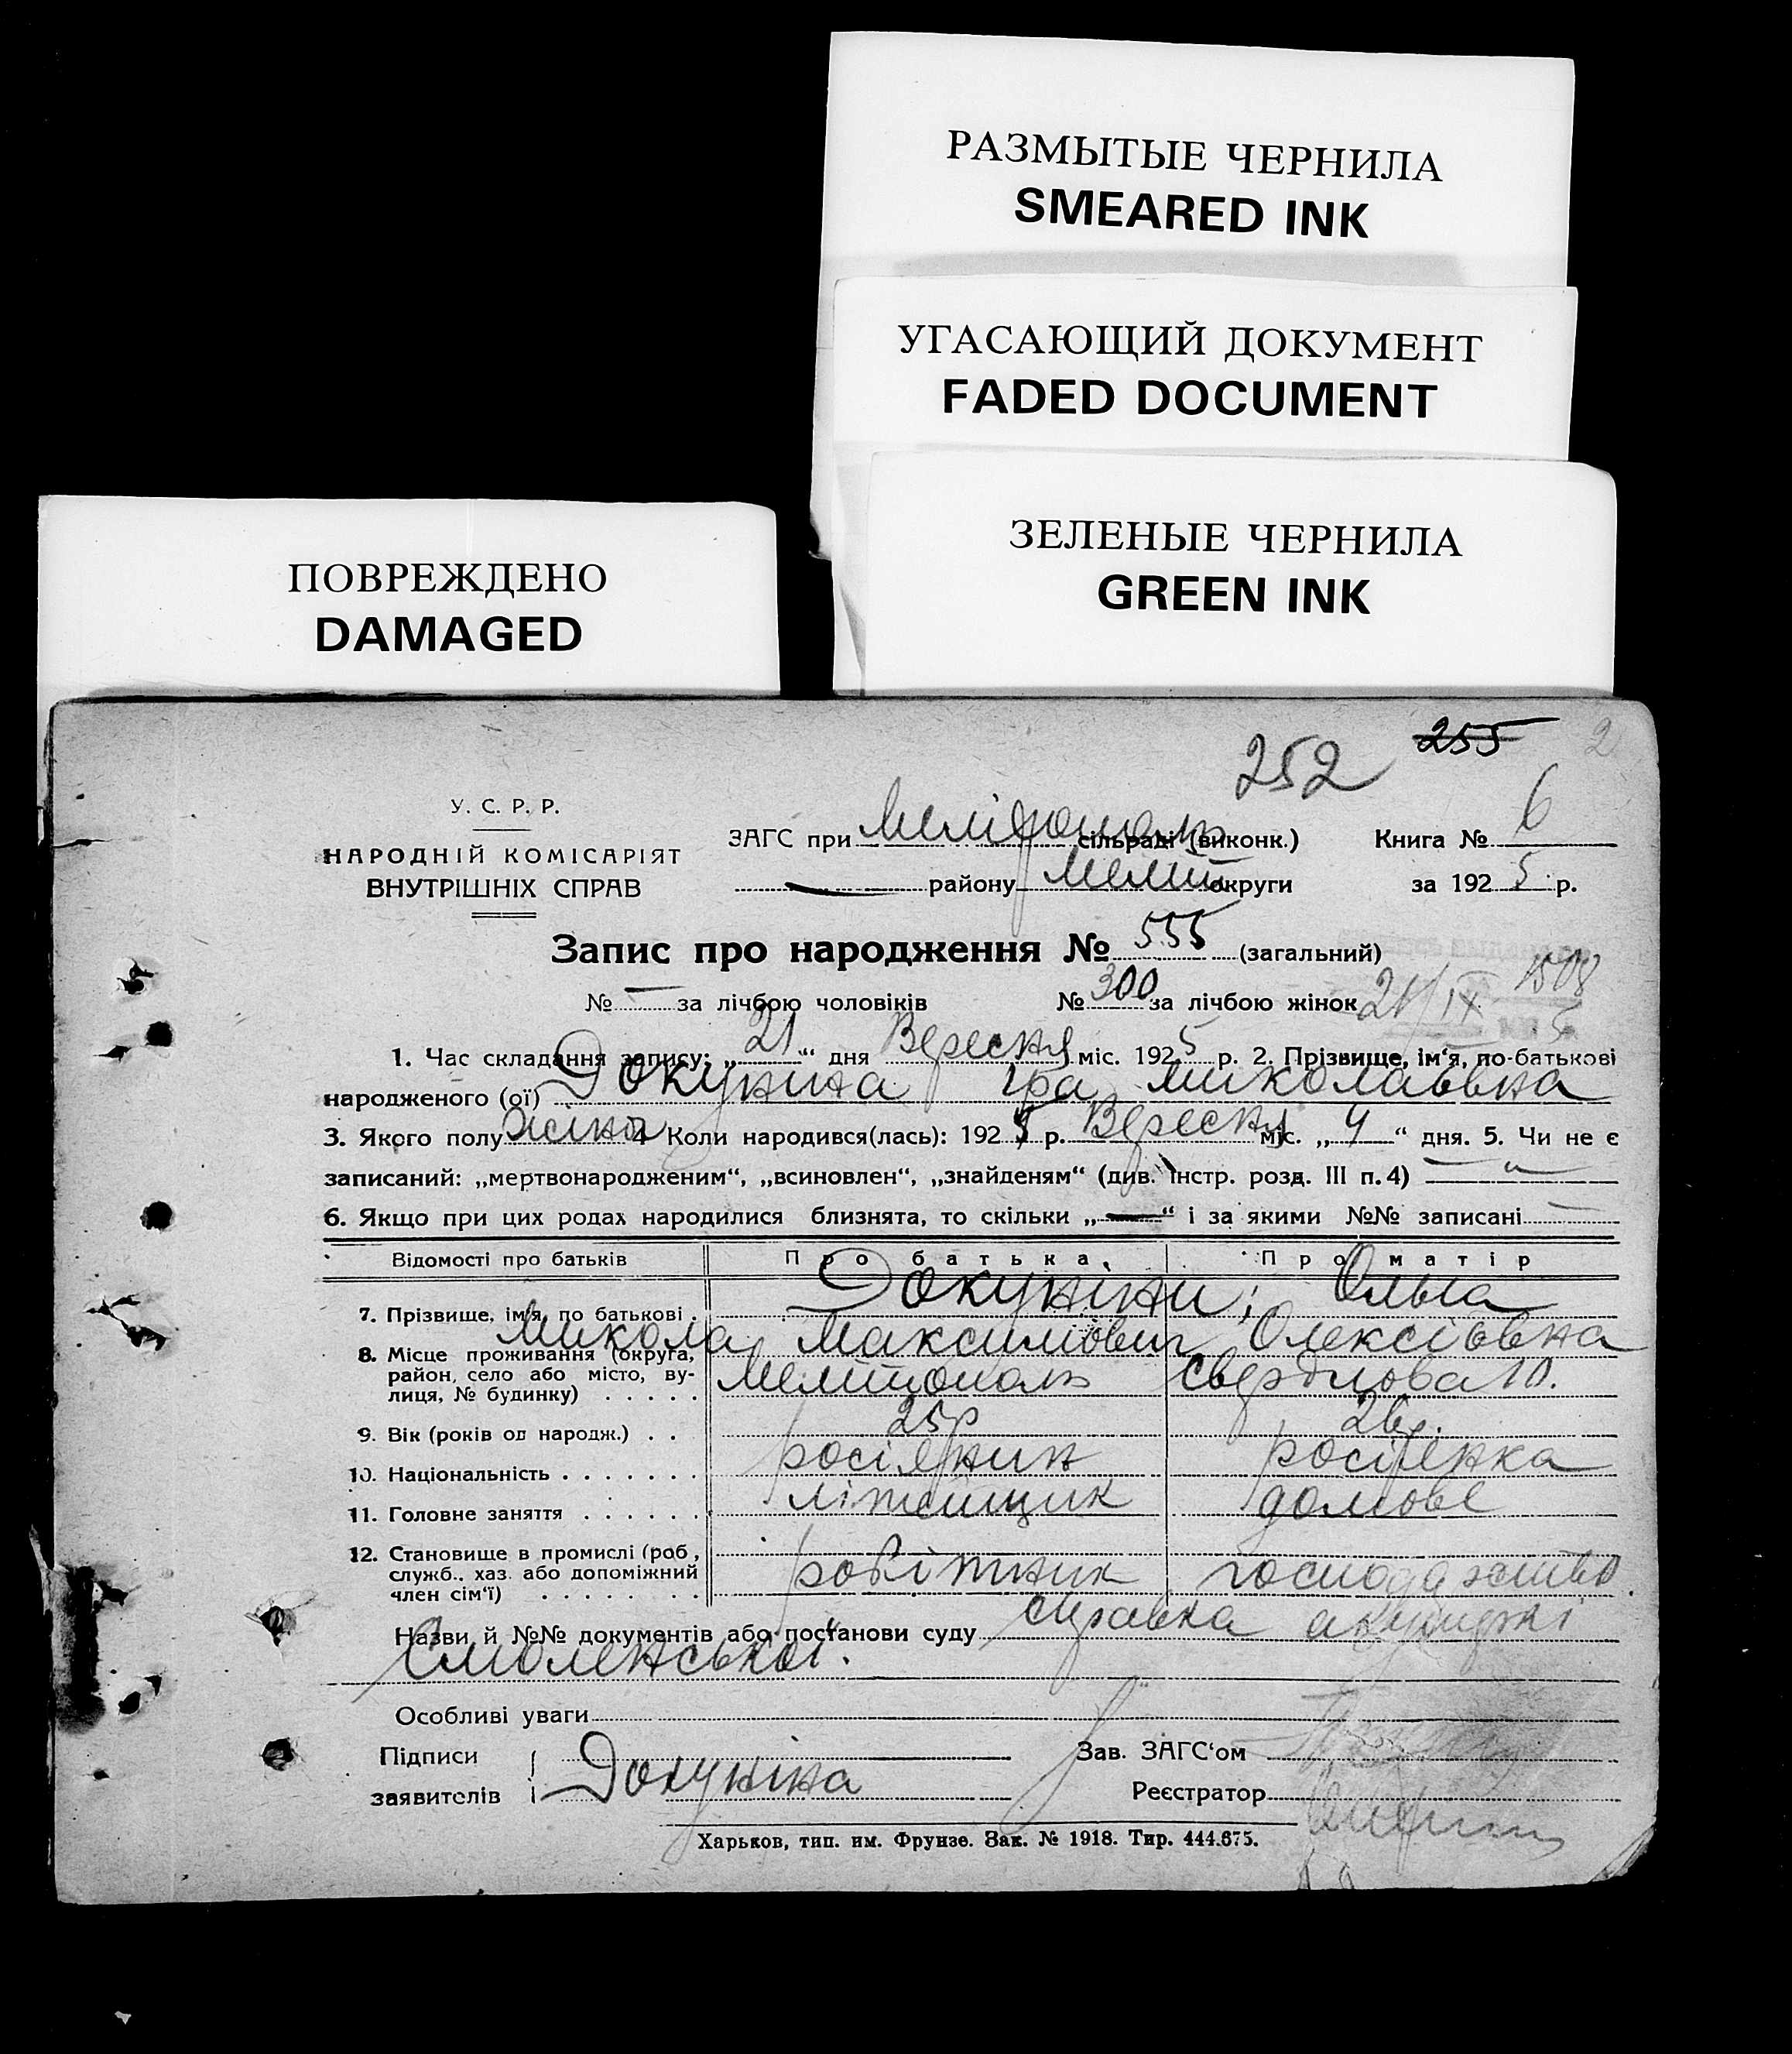 РАЗМЫТЫЕ ЧЕРНИЛА
SMEARED INK
УГАСАЮЩИЙ ДОКУМЕНТ
FADED DOCUMENT
ЗЕЛЕНЫЕ ЧЕРНИЛА
GREEN INK
ПОВРЕЖДЕНО
DAMAGED
255 2
252
У. С. Р. Р.
НАРОДНІЙ КОМІСАРІЯТ
ВНУТРІШНІХ СПРАВ
ЗАГС при Мелітополь сільраді (виконк.) Книга № 6
— району Меліт округи за 1925 р.
Запис про народження № 555 (загальний)
№ — за лічбою чоловіків № 300 за лічбою жінок 21/IX 1508
1. Час складання запису: „21“ дня Вересня міс. 1925 р. 2. Прізвище, ім‘я, по-батькові
народженого (ої) Докуніна Іра Миколаівна
3. Якого полу жіноч 4 Коли народився(лась): 1925 р. Вересня міс. „4“ дня. 5. Чи не є
записаний: „мертвонародженим“, „всиновлен“, „знайденям“ (див. Інстр. розд. III п. 4) — „ —
6. Якщо при цих родах народилися близнята, то скільки „—“ і за якими №№ записані —
Відомості про батьків Про батька Про матір
7. Прізвище, ім‘я, по батькові Докуніни; Ольга
Микола Максимович Олексіівна
8. Місце проживання (округа, район, село або місто, вулиця, № будинку) Мелітополь Свердлова 10.
9. Вік (років од народж.) 25р 26р.
10. Національність росіянин росіянка
11. Головне заняття літейщик домове
12. Становище в промислі (роб, служб., хаз. або допоміжний член сім‘ї) робітник господарство.
Назви й №№ документів або постанови суду справка акушеркі
Смоленської.
Особливі уваги
Підписи
заявителів Докуніна
Зав. ЗАГС‘ом
Реєстратор
Харьков, тип. им. Фрунзе. Зак. № 1918. Тир. 444.675.